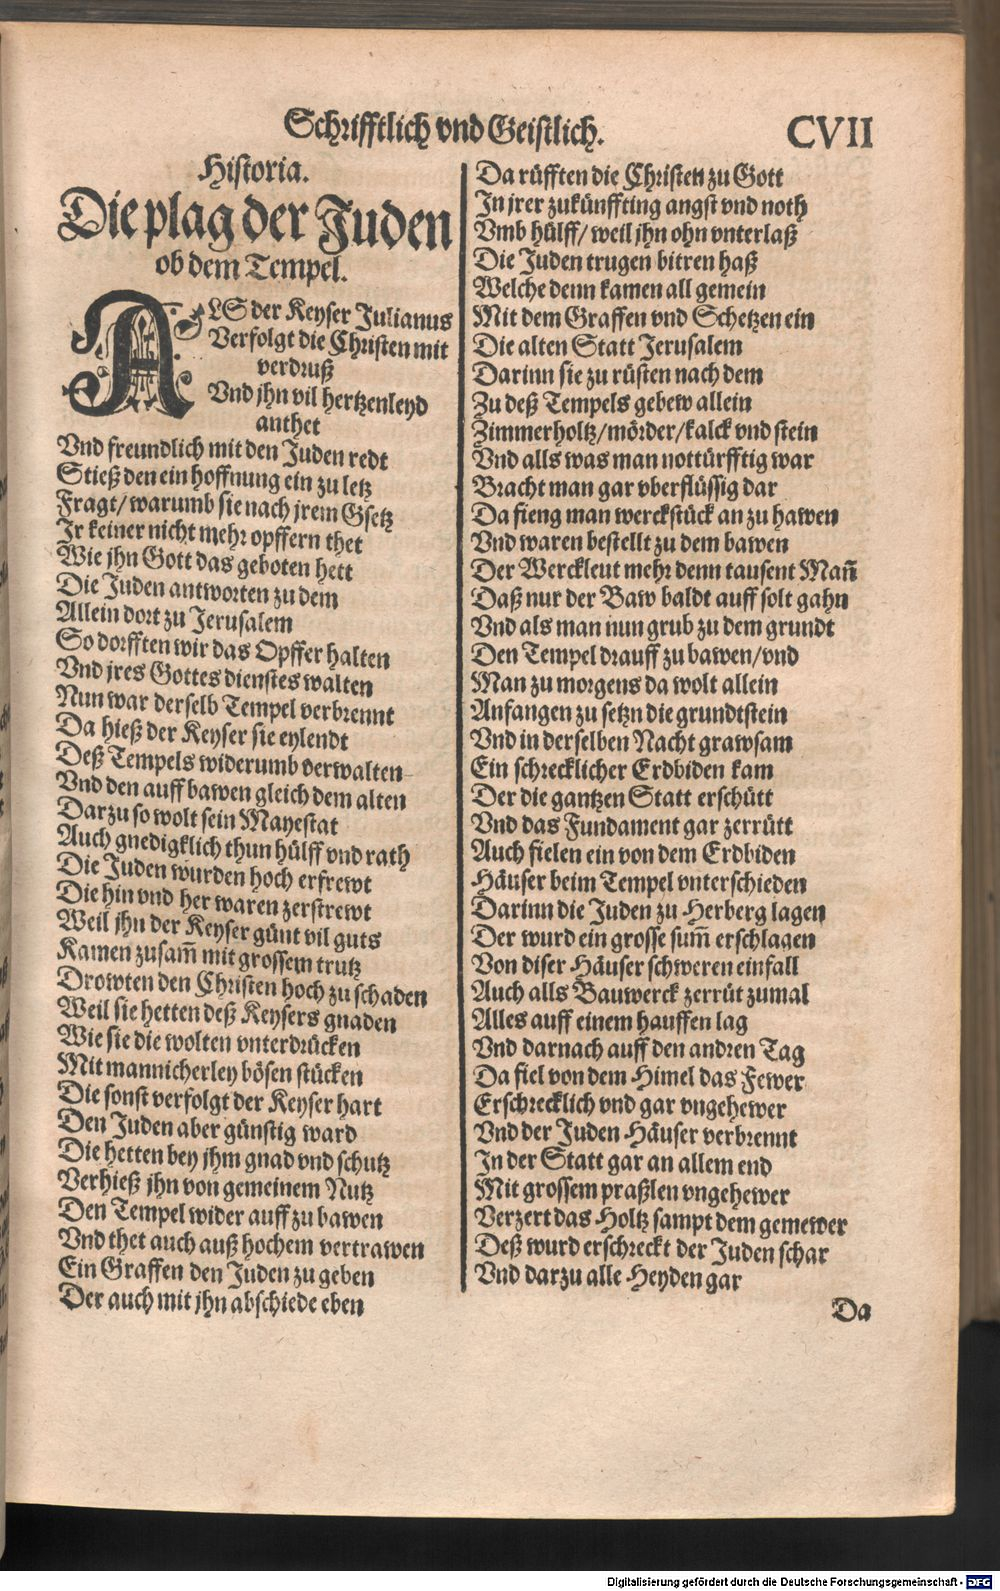 Schrifftlich vnd Geistlich. CVII
Historia.
Die plag der Juden
ob dem Tempel.
ALS der Keyser Julianus
Verfolgt die Christen mit
verdruß
Vnd jhn vil hertzenleyd
anthet
Vnd freundlich mit den Juden redt
Stieß den ein hoffnung ein zu letz
Fragt/ warumb sie nach jrem Gsetz
Jr keiner nicht mehr opffern thet
Wie jhn Gott das geboten hett
Die Juden antworten zu dem
Allein dort zu Jerusalem
So dorfften wir das Opffer halten
Vnd jres Gottes dienstes walten
Nun war derselb Tempel verbrennt
Da hieß der Keyser sie eylendt
Deß Tempels widerumb verwalten
Vnd den auff bawen gleich dem alten
Darzu so wolt sein Mayestat
Auch gnedigklich thun hülff vnd rath
Die Juden wurden hoch erfrewt
Die hin vnd her waren zerstrewt
Weil jhn der Keyser günt vil guts
Kamen zusam̃ mit grossem trutz
Drowten den Christen hoch zu schaden
Weil sie hetten deß Keysers gnaden
Wie sie die wolten vnterdrücken
Mit mannicherley bösen stücken
Die sonst verfolgt der Keyser hart
Den Juden aber günstig ward
Die hetten bey jhm gnad vnd schutz
Verhieß jhn von gemeinem Nutz
Den Tempel wider auff zu bawen
Vnd thet auch auß hochem vertrawen
Ein Graffen den Juden zu geben
Der auch mit jhn abschiede eben
Da rüfften die Christen zu Gott
Jn jrer zukünffting angst vnd noth
Vmb hülff/ weil jhn ohn vnterlaß
Die Juden trugen bitren haß
Welche denn kamen all gemein
Mit dem Graffen vnd Schetzen ein
Die alten Statt Jerusalem
Darinn sie zu rüsten nach dem
Zu deß Tempels gebew allein
Zimmerholtz/mörder/kalck vnd stein
Vnd alls was man nottürfftig war
Bracht man gar vberflüssig dar
Da fieng man werckstück an zu hawen
Vnd waren bestellt zu dem bawen
Der Werckleut mehr denn tausent Mañ
Daß nur der Baw baldt auff solt gahn
Vnd als man nun grub zu dem grundt
Den Tempel drauff zu bawen/vnd
Man zu morgens da wolt allein
Anfangen zu setzn die grundtstein
Vnd in derselben Nacht grawsam
Ein schrecklicher Erdbiden kam
Der die gantzen Statt erschütt
Vnd das Fundament gar zerrütt
Auch fielen ein von dem Erdbiden
Häuser beim Tempel vnterschieden
Darinn die Juden zu Herberg lagen
Der wurd ein grosse sum̃ erschlagen
Von diser Häuser schweren einfall
Auch alls Bauwerck zerrüt zumal
Alles auff einem hauffen lag
Vnd darnach auff den andren Tag
Da fiel von dem Himel das Fewer
Erschrecklich vnd gar vngehewer
Vnd der Juden Häuser verbrennt
Jn der Statt gar an allem end
Mit grossem praßlen vngehewer
Verzert das Holtz sampt dem gemewer
Deß wurd erschreckt der Juden schar
Vnd darzu alle Heyden gar
Da
Digitalisierung gefördert durch die Deutsche Forschungsgemeinschaft - DFG